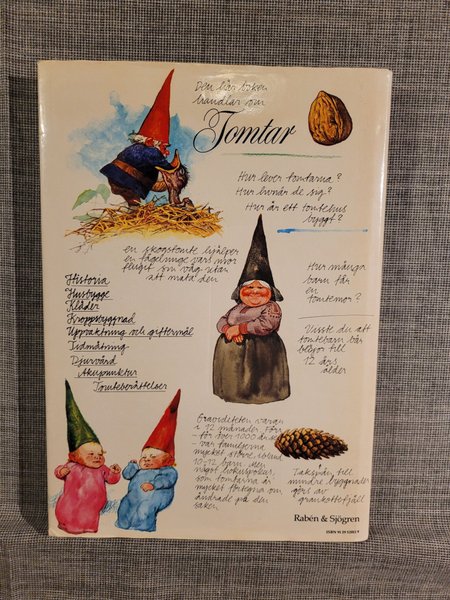 Den här boken
handlar om
Tomtar
Hur lever tomtarna?
Hur livnär de sig?
Hur är ett tomtehus
byggt?
en skogstomte hjälper
en fågelunge vars mor
flugit sin väg utan
att mata den
Historia
Husbygge
Kläder
Kroppsbyggnad
Uppvaktning och giftermål
Tidmätning
Djurvård
Akupunktur
Tomteberättelser
Hur många
barn får
en
tomtemor?
Visste du att
tomtebarn bär
blöjor till
12 års
ålder
Graviditeten varar
i 12 månader. Förr
- för över 1000 år sedan
- var familjerna
mycket större, ibland
10-12 barn. Men
något
som tomtarna är
mycket förtegna om
ändrade på den
saken
Takspån till
mindre byggnader
görs av
grankottefjäll
Rabén & Sjögren